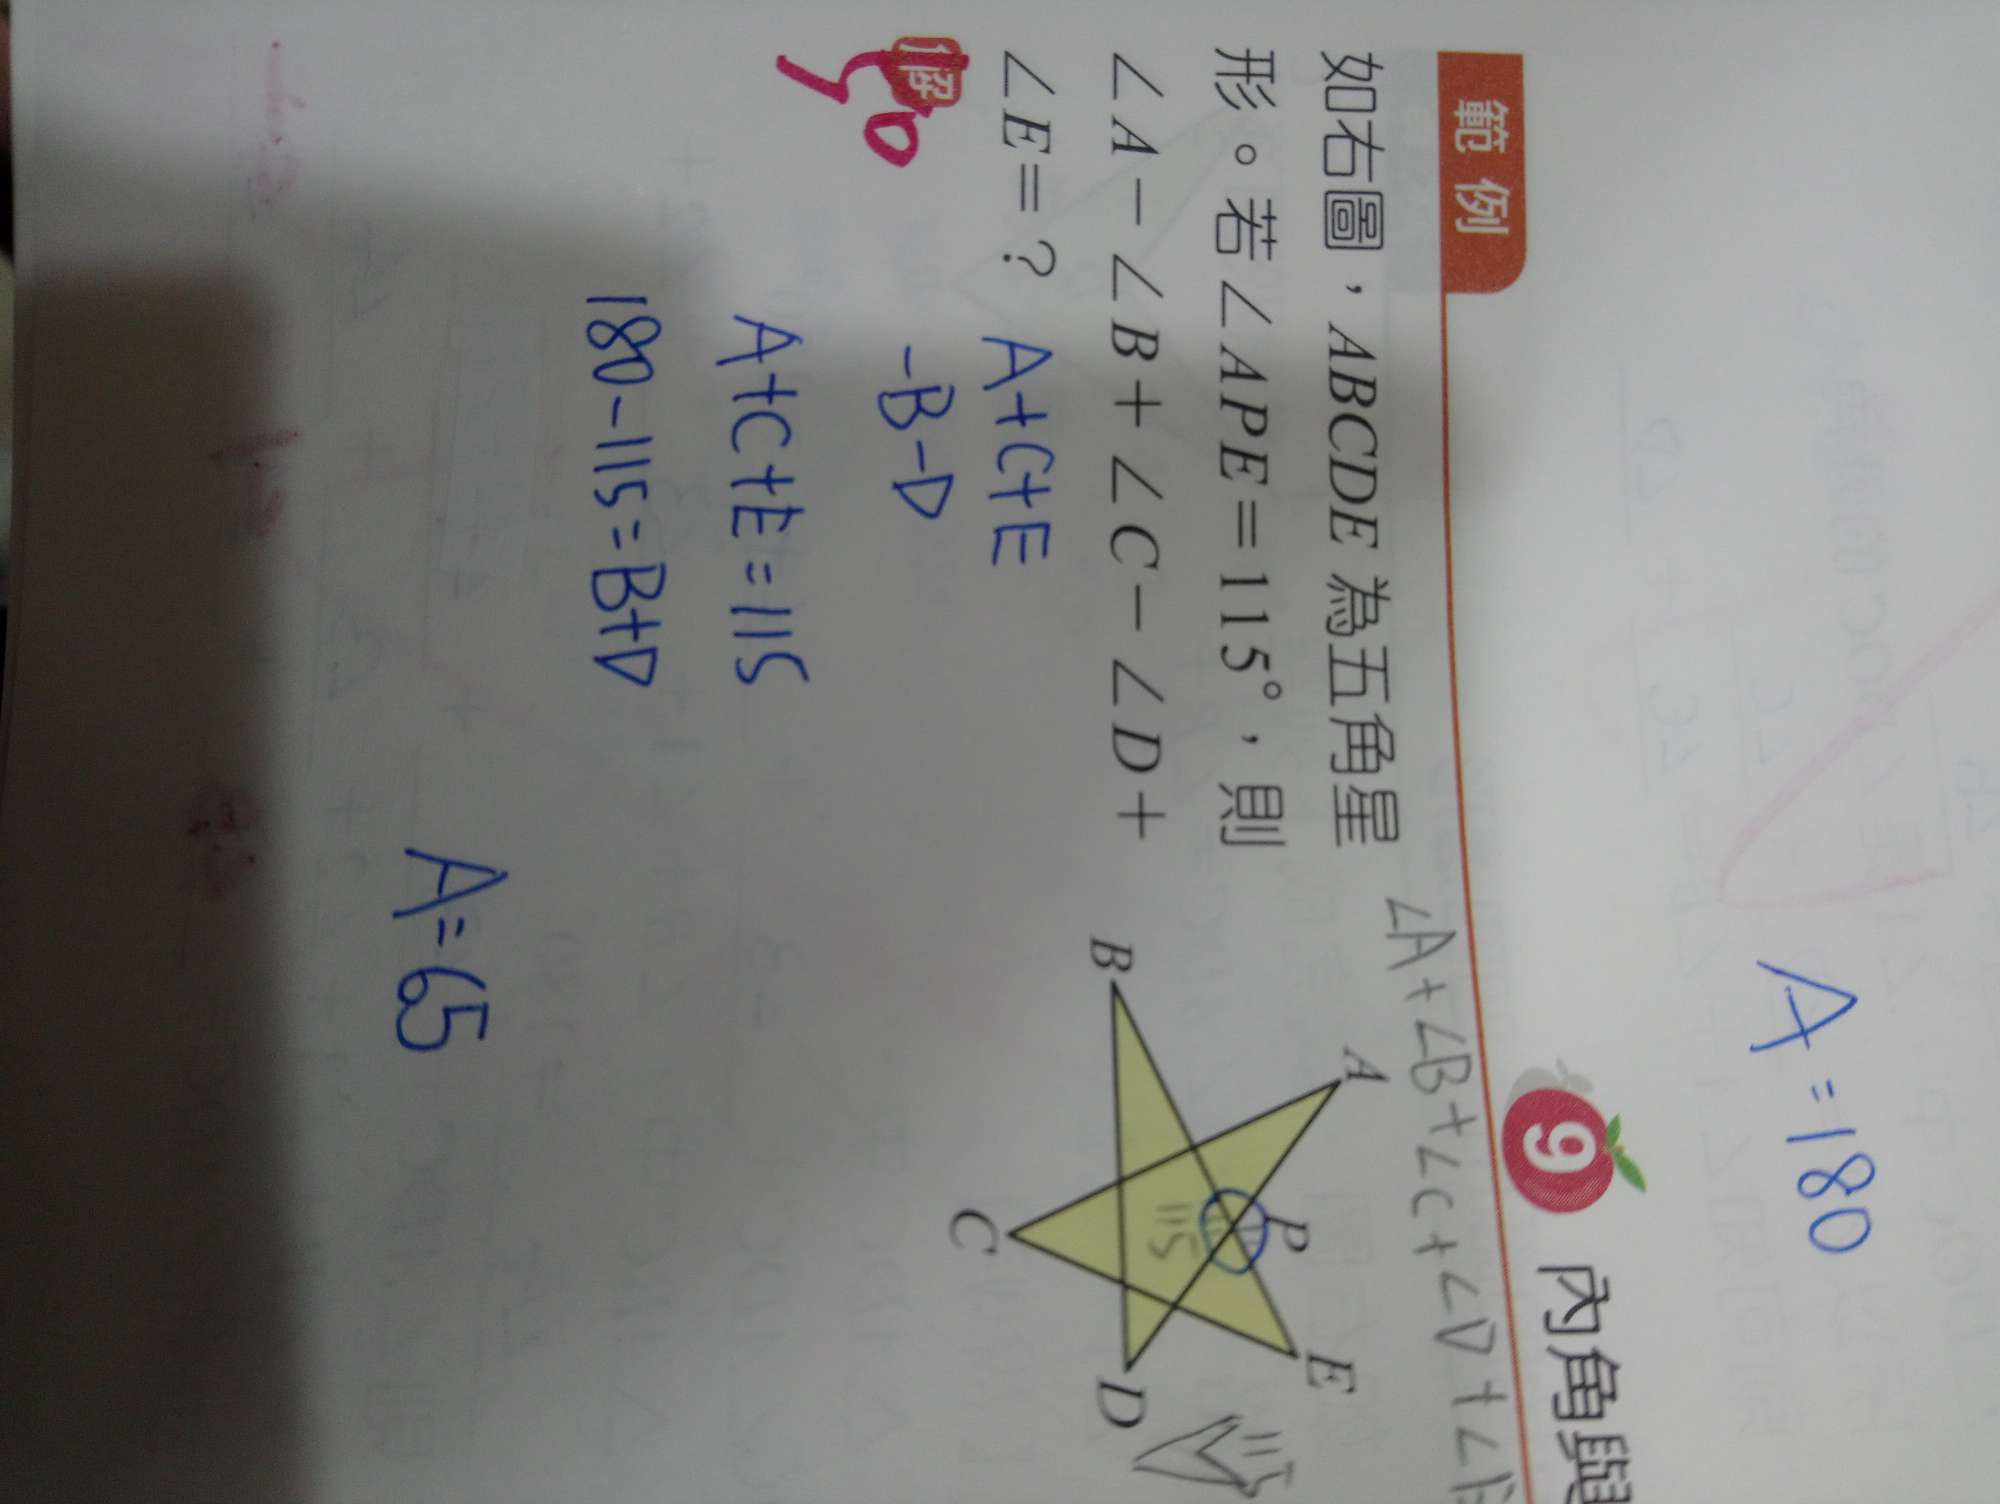 A=180
9 內角與
範例
∠A+∠B+∠C+∠D+∠E
如右圖，ABCDE 為五角星
形。若∠APE=115°，則
∠A-∠B+∠C-∠D+
∠E=？
A
P
E
B
D
C
115
115
解
50
A+C+E
-B-D
A+C+E=115
180-115=B+D
A=65